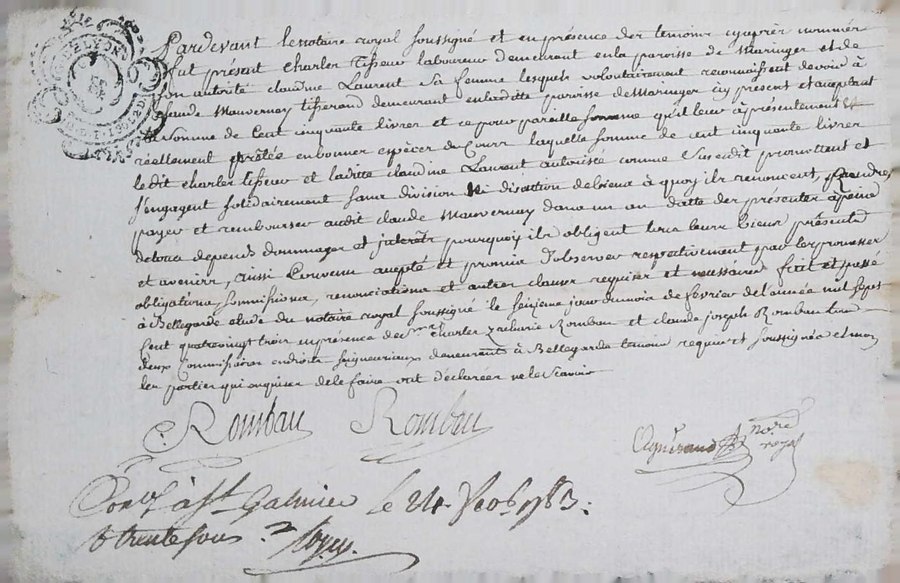 Pardevant le notaire royal soussigné et en presence des temoins cyaprès nommés
fut présent Charles tisseur laboureur demeurant en la paroisse de Maringes et de
son autorité claudine Laurent sa femme lesquels volontairement reconnoissent devoir à
claude Mauvernay tisserand demeurant en laditte paroisse de Maringes icy present et acceptant
la Somme de Cent cinquante livres et ce pour pareille somme qu'il leur a présentement et
réellement prêtée en bonnes espèces de Cours laquelle somme de cent cinquante livres
ledit charles tisseur et laditte claudine Laurent autorisée comme Susdit promettent et
s'engagent solidairement sans division ni discution de biens à quoy ils renoncent, Rendre,
payer et rembourser audit claude Mauvernay dans un an datte des présentes à peine
de tous depends dommages et interêts pourquoy ils obligent tous leurs biens présents
et avenir, ainsi Convenu accepté et promis d'observer respectivement par les promesses
obligations, soumissions, renonciations et autres clauses requises et necessaires fait et passé
à Bellegarde etude du notaire royal soussigné le seizieme jour du mois de fevrier de l'année mil sept
cent quatrevingt trois en presence de mrs charles zacharie Rombau et claude joseph Rombau tous
deux Commissaires en droits seigneuriaux demeurants à Bellegarde temoins requis et soussignés et non
les parties qui enquises de le faire ont declarées ne le Scavoir
Rombau Rombau
nore
royal
à St Galmier le 24 1783.
trente sous